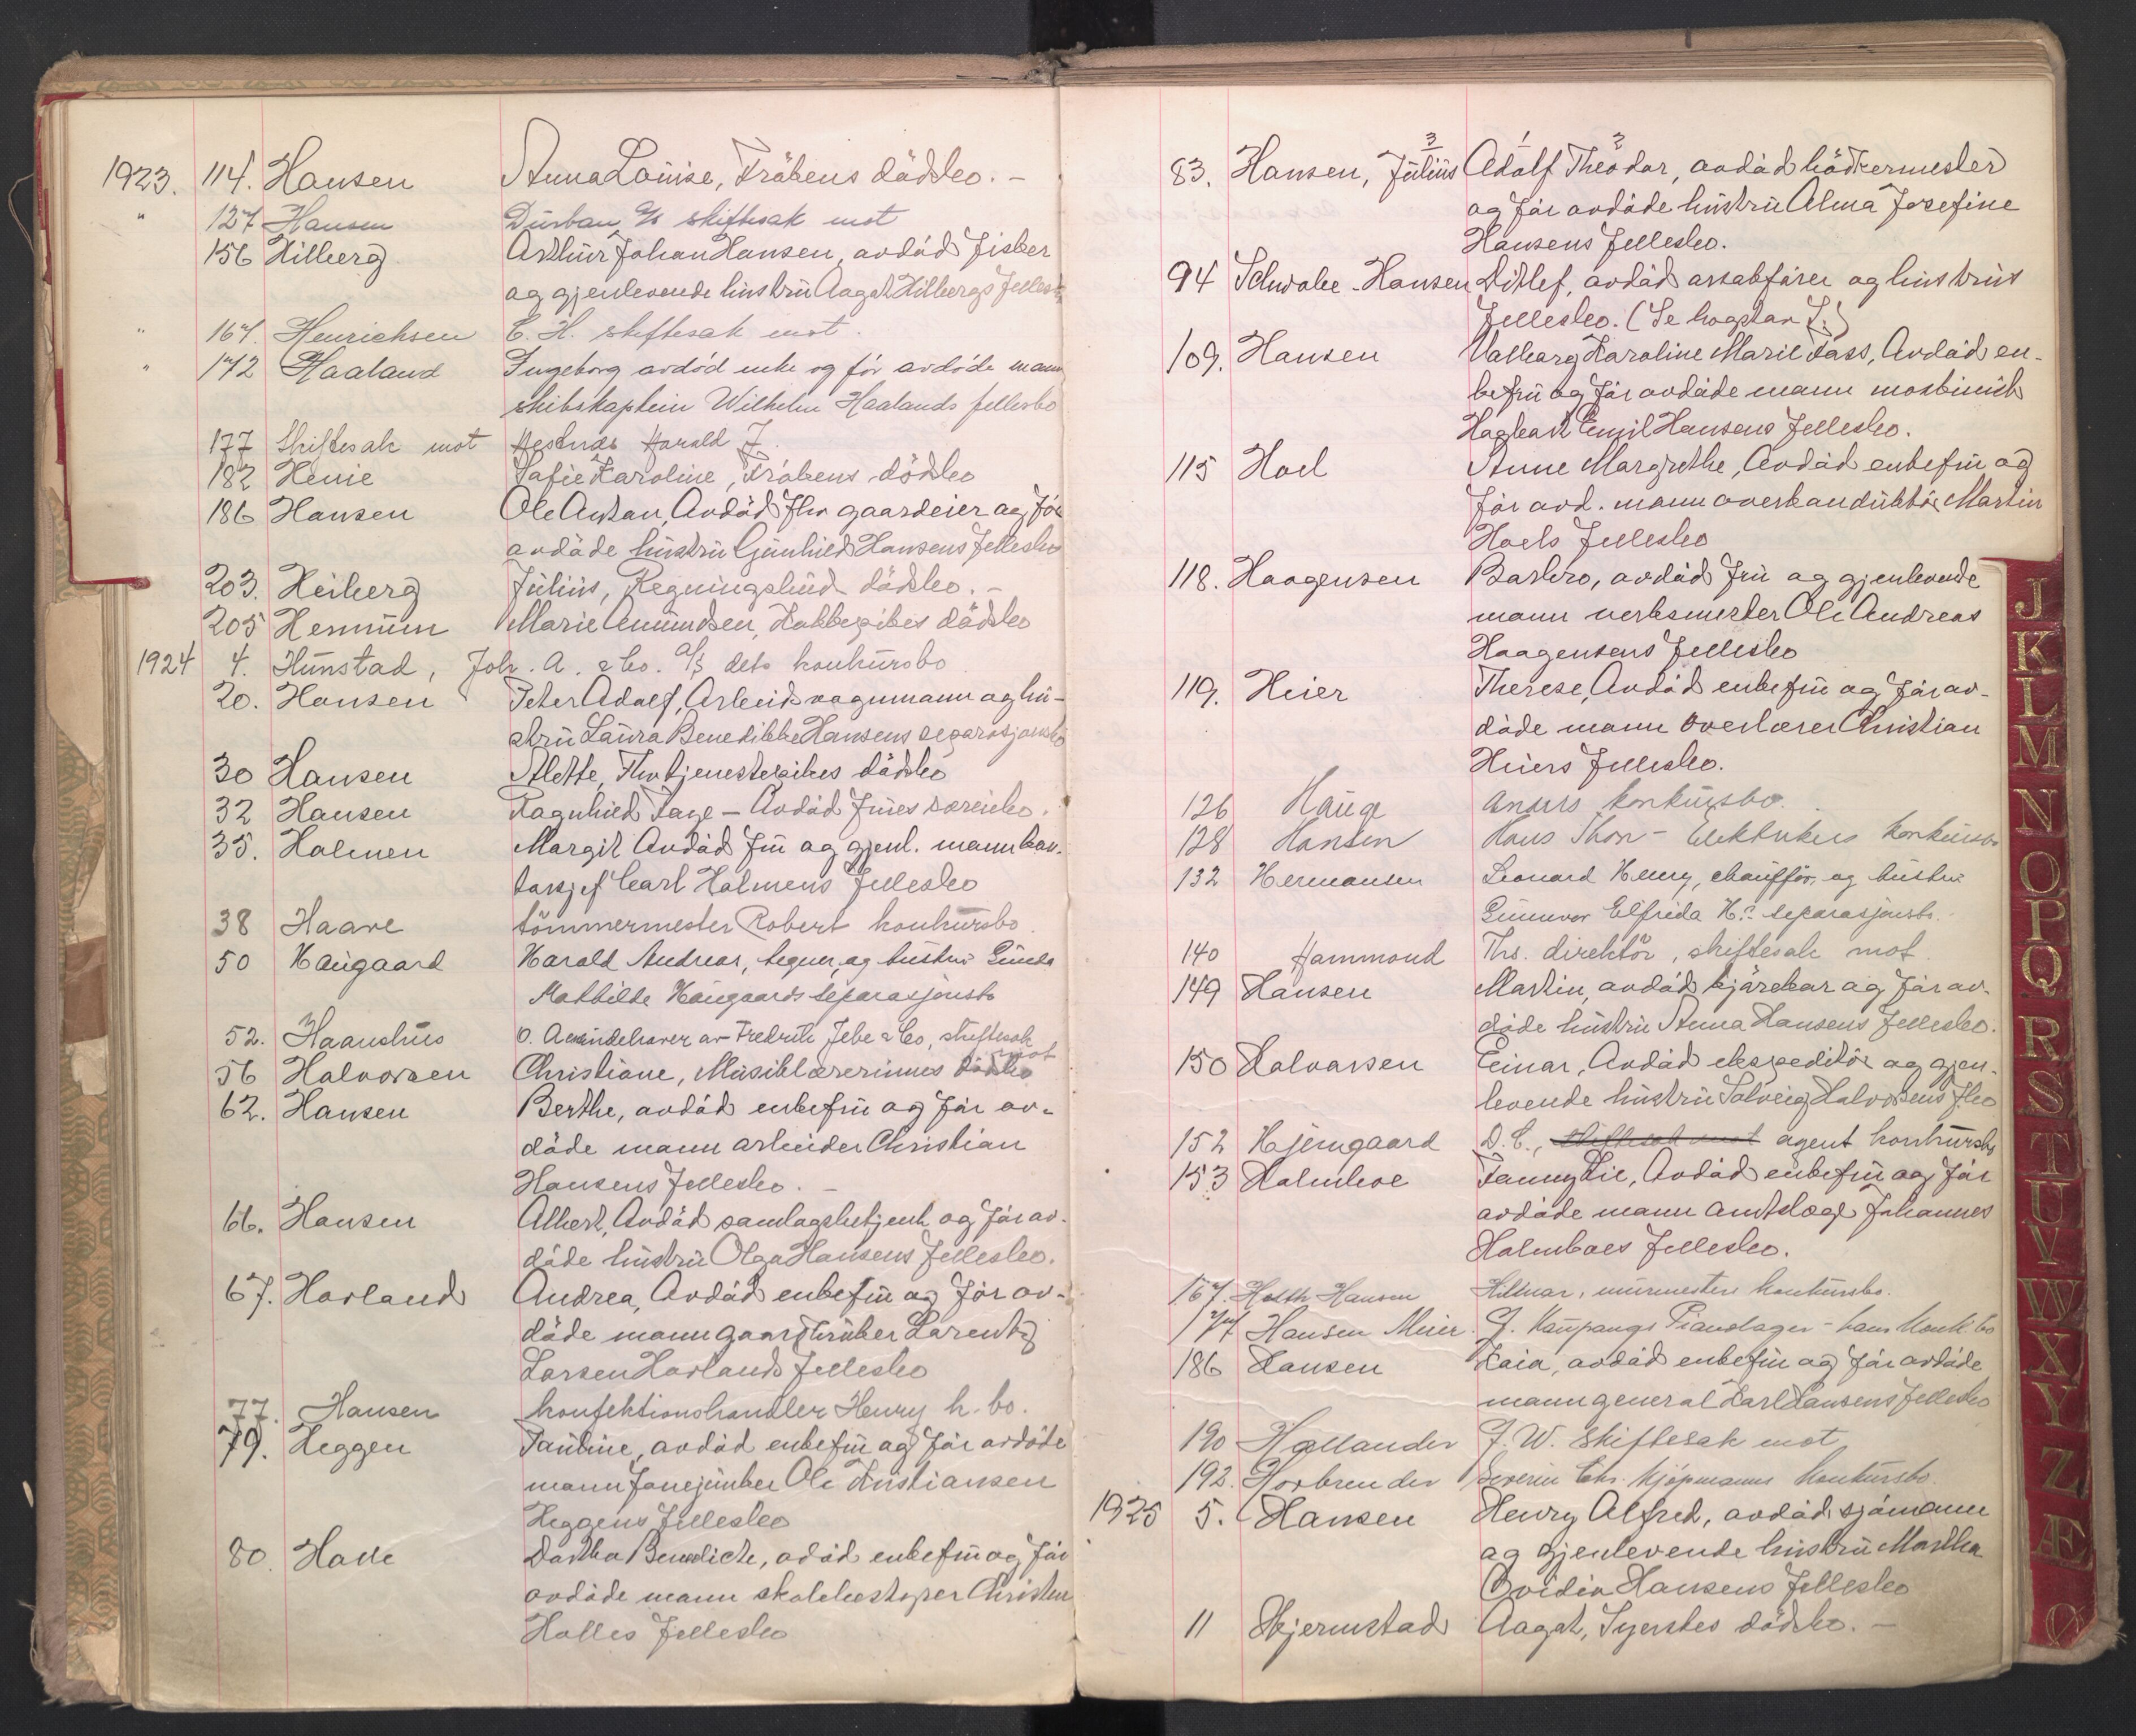 1923. 114. Hansen Anna Louise, Frökens dödsbo. -
" 127 Hansen Durban A/S skiftesak mot
156 Hilberg Arthur Johan Hansen, avdöd fisker
og gjenlevende hustru Aagot Hilbergs fellesbo
" 164. Henrichsen C. H. skiftesak mot.
" 172 Haaland Ingeborg avdöd enke og för avdöde mann
skibskaptein Wilhelm Haalands fellesbo
177 Skiftesak mot Hestnes Harald J.
182 Henie Sofie Karoline, Frökens dödsbo
186 Hansen Ole Anton, Avdöd fhv gaardeier og för
avdöde hustru Gunhild Hansens fellesbo
203. Heiberg Julius, Regningsbud dödsbo. -
205 Hemnum Marie Amundsen, Kokkepikes dödsbo
1924 4. Hunstad, Joh. A. & Co. A/S dets konkursbo
20. Hansen Peter Adolf, Arbeidsvognmann og hu-
stru Laura Benedikke Hansens separasjonsbo
30 Hansen Alette, Fhv tjenestepikes dödsbo
32 Hansen Ragnhild Faye - Avdöd frues særeiebo.
35. Holmen Margit Avdöd fru og gjenl. mann kon-
torsjef Carl Holmens fellesbo
38 Haave tömmermester Robert konkursbo.
50 Haugaard Harald Andreas, tegner, og hustru Gunda
Mathilde Haugaards separasjonsbo
52. Haanshus O. A. innehaver av Fredrik Jebe & Co, skiftesak
mot
56 Halvorsen Christiane, Musiklærerinnes dödsbo
62. Hansen Berthe, avdöd enkefru og för av-
döde mann arbeider Christian
Hansens fellesbo. -
66. Hansen Albert, Avdöd samlagsbetjent og för av-
döde hustru Olga Hansens fellesbo.
67. Hovland Andrea, Avdöd enkefru og för av-
döde mann gaardbruker Lorentz
Larsen Hovlands fellesbo
77. Hansen konfektionshandler Henry k. bo.
79. Heggen Pauline, avdöd enkefru og för avdöde
mann fanejunker Ole Kristiansen
Heggens fellesbo
80. Holle Dorthea Benedicte, avdöd enkefru og för
avdöde mann skolebestyrer Christen
Holles fellesbo
3 3
83. Hansen, Julius Adolf Theodor, avdöd bödkermester
og för avdöde hustru Alma Josefine
Hansens fellesbo.
94 Schwabe-Hansen Ditlef, avdöd orsabförer og hustrus
fellesbo. (Se bogstav S.)
109. Hansen Valborg Karoline Marie Foss, Avdöd en-
kefru og för avdöde mann maskinist
Hagbart Emil Hansens fellesbo.
115 Hoel Anne Margrethe, Avdöd enkefru og
för avd. mann overkonduktör Martin
Hoels fellesbo
118. Haagensen Barbro, avdöd fru og gjenlevende
mann verksmester Ole Andreas
Haagensens fellesbo
119. Heier Therese, Avdöd enkefru og för av-
döde mann overlærer Christian
Heiers fellesbo.
126 Haug Anders konkursbo.
128 Hansen Hans Thor - Elektrikers konkursbo
132 Hermansen Leonard Henry, chaufför, og hustru
Gunnvor Elfrida H.s separasjonsbo.
140 Hammond Ths. direktör, skiftesak mot.
149 Hansen Martin, avdöd kjörekar og för av-
döde hustru Anna Hansens fellesbo.
150 Halvorsen Einar, Avdöd ekspeditör og gjen-
levende hustru Solveig Halvorsens fbo
152 Hjemgaard D. C., skiftesak mot agent konkursbo
153 Holmboe Fanny Lie, Avdöd enkefru og för
avdöde mann amtslæge Johannes
Holmboes fellesbo.
167. Holth Hansen Hilmar, murmesters konkursbo.
174 Hansen Meier. J. Kaupangs Pianolager - hans konk.bo
186 Hansen Kaia, avdöd enkefru og för avdöde
mann general Karl Hansens fellesbo
190 Hollander J. W. Skiftesak mot
192. Horbrender Severin Chr. kjöpmanns konkursbo.
1925 5. Hansen Henry Alfred, avdöd sjömann
og gjenlevende hustru Martha
Ovidia Hansens fellesbo
11 Hjermstad Aagot, Syerskes dödsbo. -
J
K
L
M
N
O
P
Q
R
S
T
U
V
W
X
Y
Z
Æ
Ø